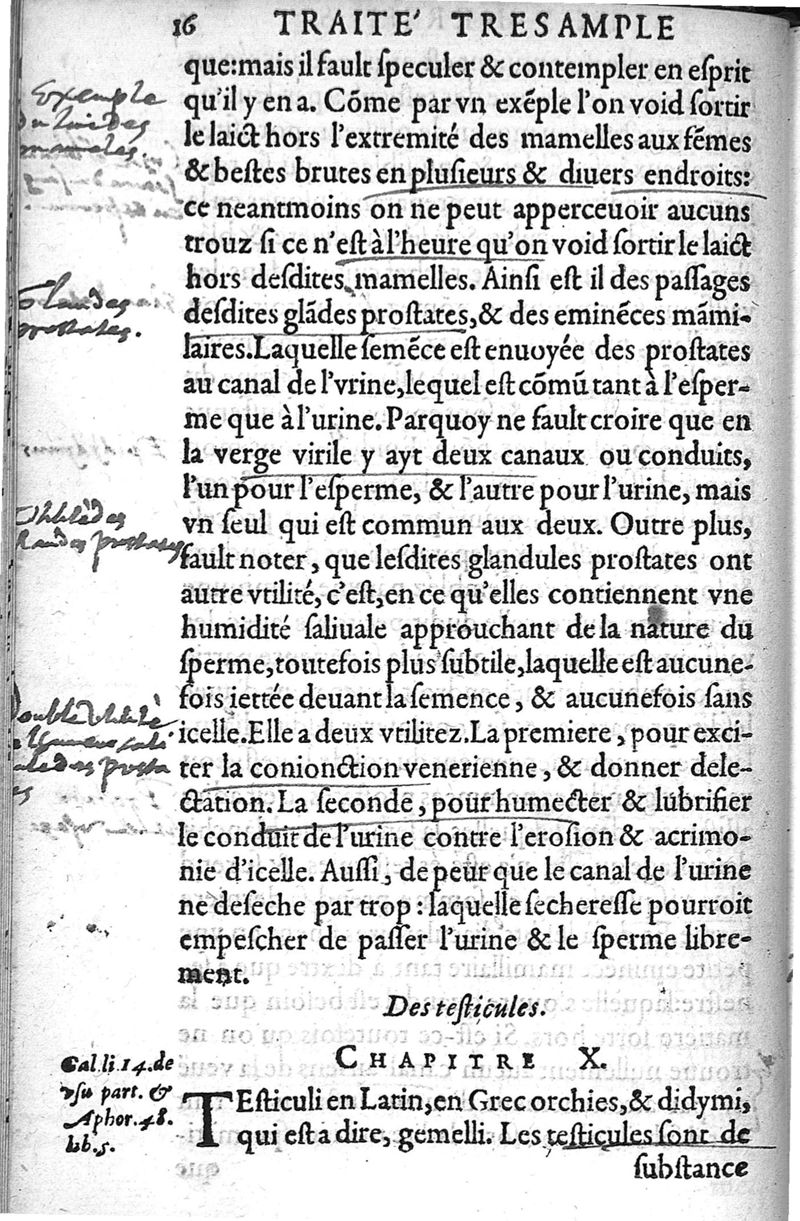 16 TRAITE' TRESAMPLE
que:mais il fault ſpeculer & contempler en eſprit
qu'il y en a. Cõme par vn exẽple l'on void ſortir
le laict hors l'extremité des mamelles aux fẽmes
& beſtes brutes en pluſieurs & diuers endroits:
ce neantmoins on ne peut apperceuoir aucuns
trouz ſi ce n'eſt à l'heure qu'on void ſortir le laict
hors deſdites mamelles. Ainſi eſt il des paſſages
deſdites glãdes proſtates,& des eminẽces mãmi-
laires.Laquelle ſemẽce eſt enuoyée des proſtates
au canal de l'vrine,lequel eſt cõmũ tant à l'eſper-
me que à l'urine. Parquoy ne fault croire que en
la verge virile y ayt deux canaux ou conduits,
l'un pour l'eſperme, & l'autre pour l'urine, mais
vn ſeul qui eſt commun aux deux. Outre plus,
fault noter, que leſdites glandules proſtates ont
autre vtilité, c'eſt,en ce qu'elles contiennent vne
humidité ſaliuale approuchant de la nature du
ſperme,toutefois plus ſubtile,laquelle eſt aucune-
fois iettée deuant la ſemence, & aucunefois ſans
icelle.Elle a deux vtilitez.La premiere, pour exci-
ter la conionction venerienne, & donner dele-
ctation. La ſeconde, pour humecter & lubrifier
le conduit de l'urine contre l'eroſion & acrimo-
nie d'icelle. Auſſi, de peur que le canal de l'urine
ne deſeche par trop : laquelle ſechereſſe pourroit
empeſcher de paſſer l'urine & le ſperme libre-
ment.
Exemple
mameles
Glandes
proſtates.
glandes proſtates
Double vtilité
Des teſticules.
CHAPITRE X.
Gal li.14.de
vſu part. &
Aphor.48.
lib.5.
TEſticuli en Latin,en Grec orchies,& didymi,
qui eſt a dire, gemelli. Les teſticules ſont de
ſubſtance